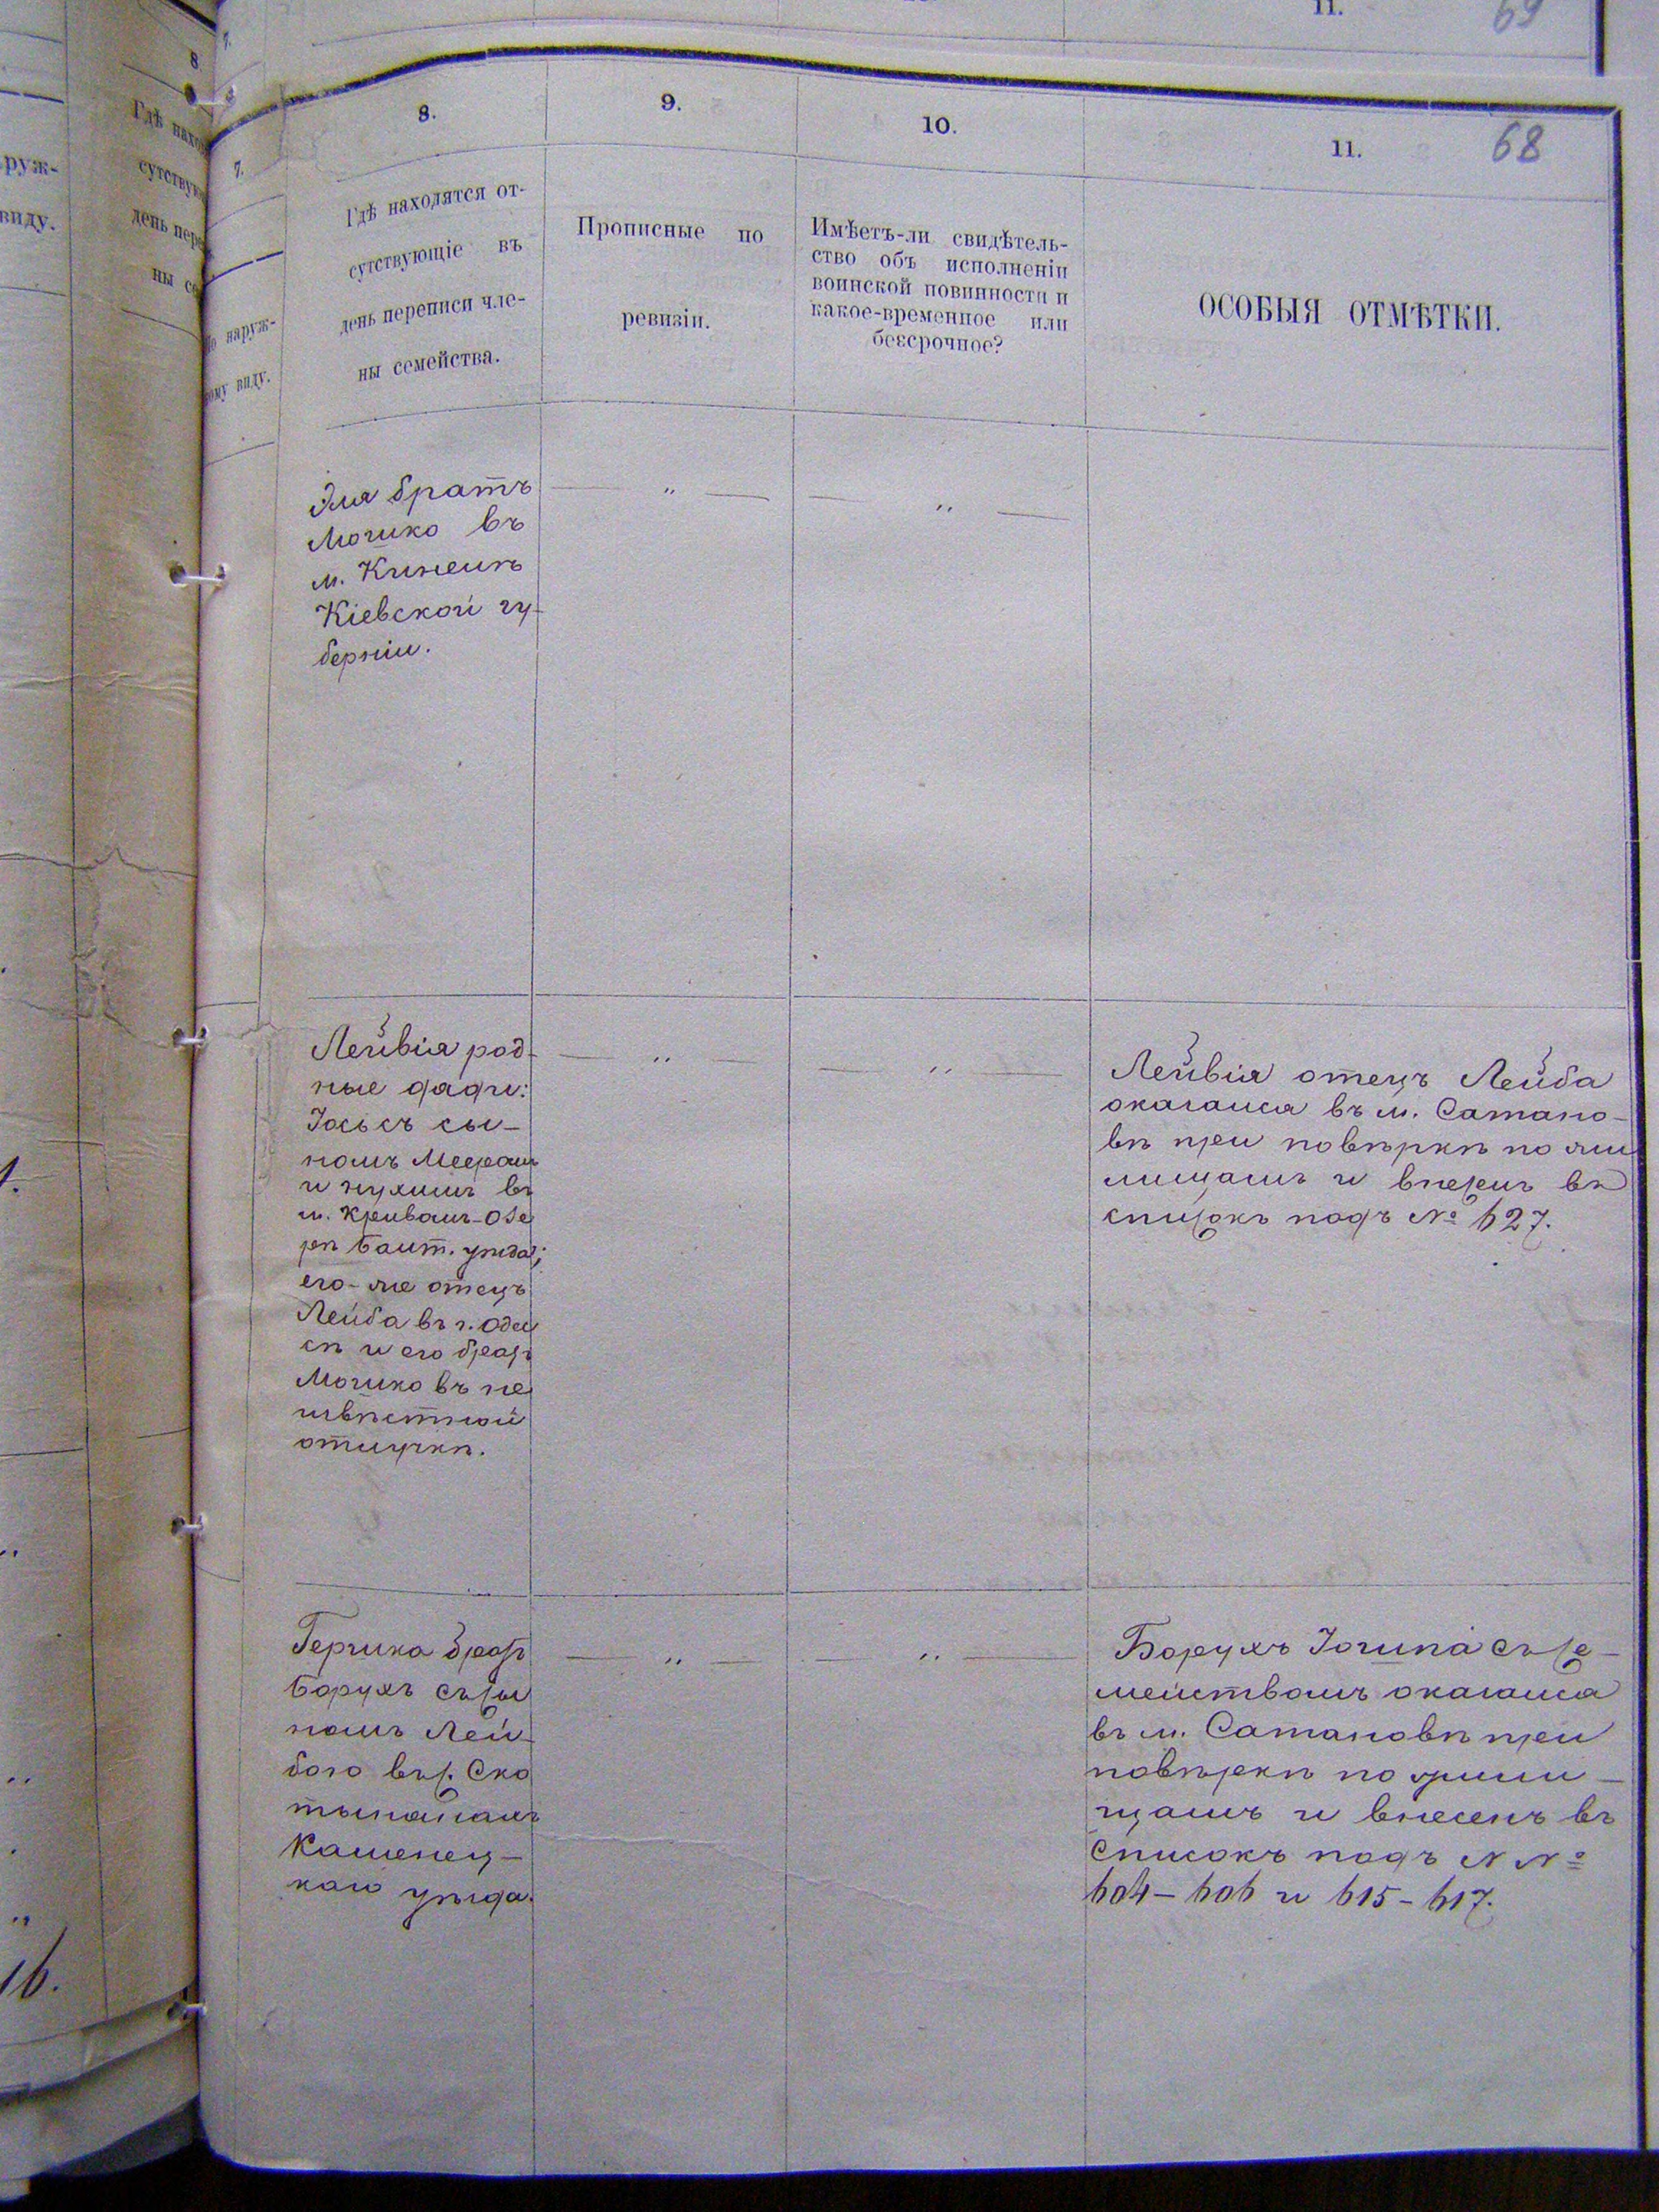 11.
69
68
8.
Гдѣ находятся от-
сутствующіе въ
день переписи чле-
ны семейства.
9.
Прописные по
ревизіи.
10.
Имѣетъ-ли свидѣтель-
ство объ исполненіи
воинской повинности и
какое-временное или
безсрочное?
11.
ОСОБЫЯ ОТМѢТКИ.
7.
По наруж-
ному виду.
руж-
виду.
8
Гдѣ нахо
сутствую
день пере
ны се
Эля братъ
Мошко въ
м.
Кіевской гу-
берніи.
— " —
— " —
Лейвія род-
ные дяди:
Іось съ сы-
номъ Меером
и Нухимъ въ
м. Кривомъ-Озе
рѣ Балт. уѣзда;
его-же отецъ
Лейба въ г. Одес
сѣ и его братъ
Мошко въ не
извѣстной
отлучкѣ.
— " —
— " —
Лейвія отецъ Лейба
оказался въ м. Сатано-
вѣ при повѣркѣ по жи
лищамъ и внесенъ въ
списокъ подъ № 627.
Гершка братъ
Борухъ съ сы
номъ Лей-
бою въ с. Ско
тынянахъ
Каменец-
каго уѣзда.
— " —
— " —
Борухъ съ се-
мействомъ оказался
въ м. Сатановѣ при
повѣркѣ по жили-
щамъ и внесенъ въ
списокъ подъ N №
604-606 и 615-617.
16.